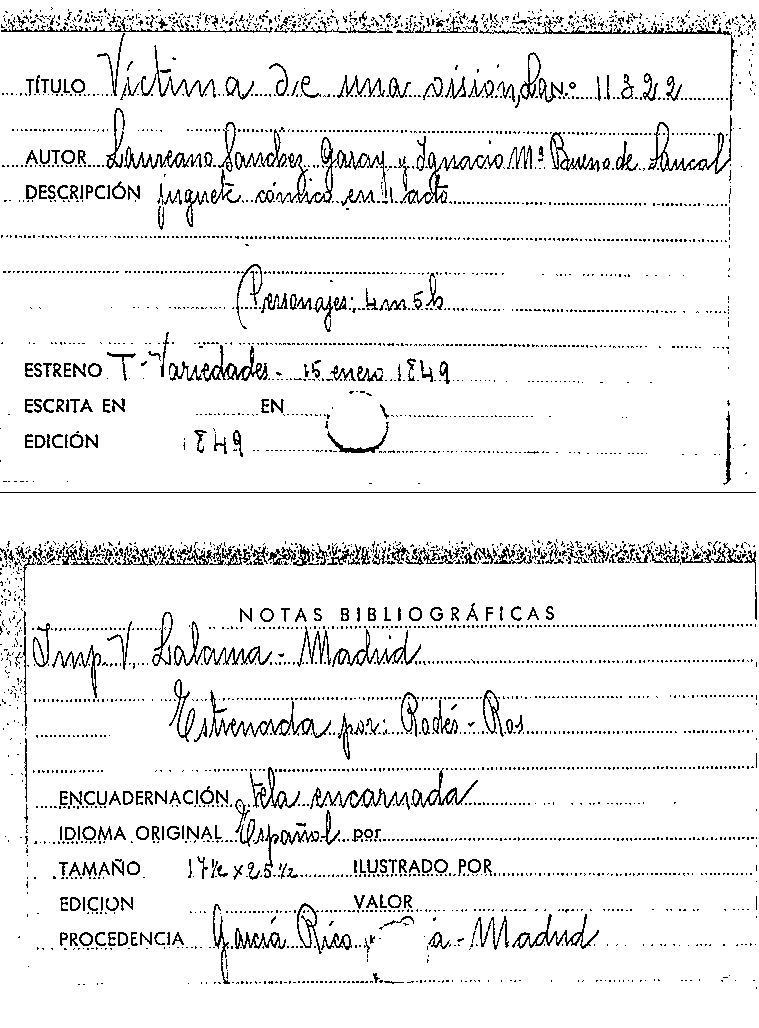 TÍTULO Víctima de una visión, La N.º 11822
AUTOR Laureano Sánchez Garay y Ignacio Mª Bueno de
DESCRIPCIÓN juguete cómico en 1 acto
Personajes: 4 m 5 h
ESTRENO T- Variedades - 15 enero 1849
ESCRITA EN EN
EDICIÓN 1849
NOTAS BIBLIOGRÁFICAS
Imp. V. Lalama - Madrid
Estrenada por: Rodés - Ros
ENCUADERNACIÓN tela encarnada
IDIOMA ORIGINAL Español por
TAMAÑO 17½ x 25½ ILUSTRADO POR
EDICION VALOR
PROCEDENCIA García Rico y - Madrid